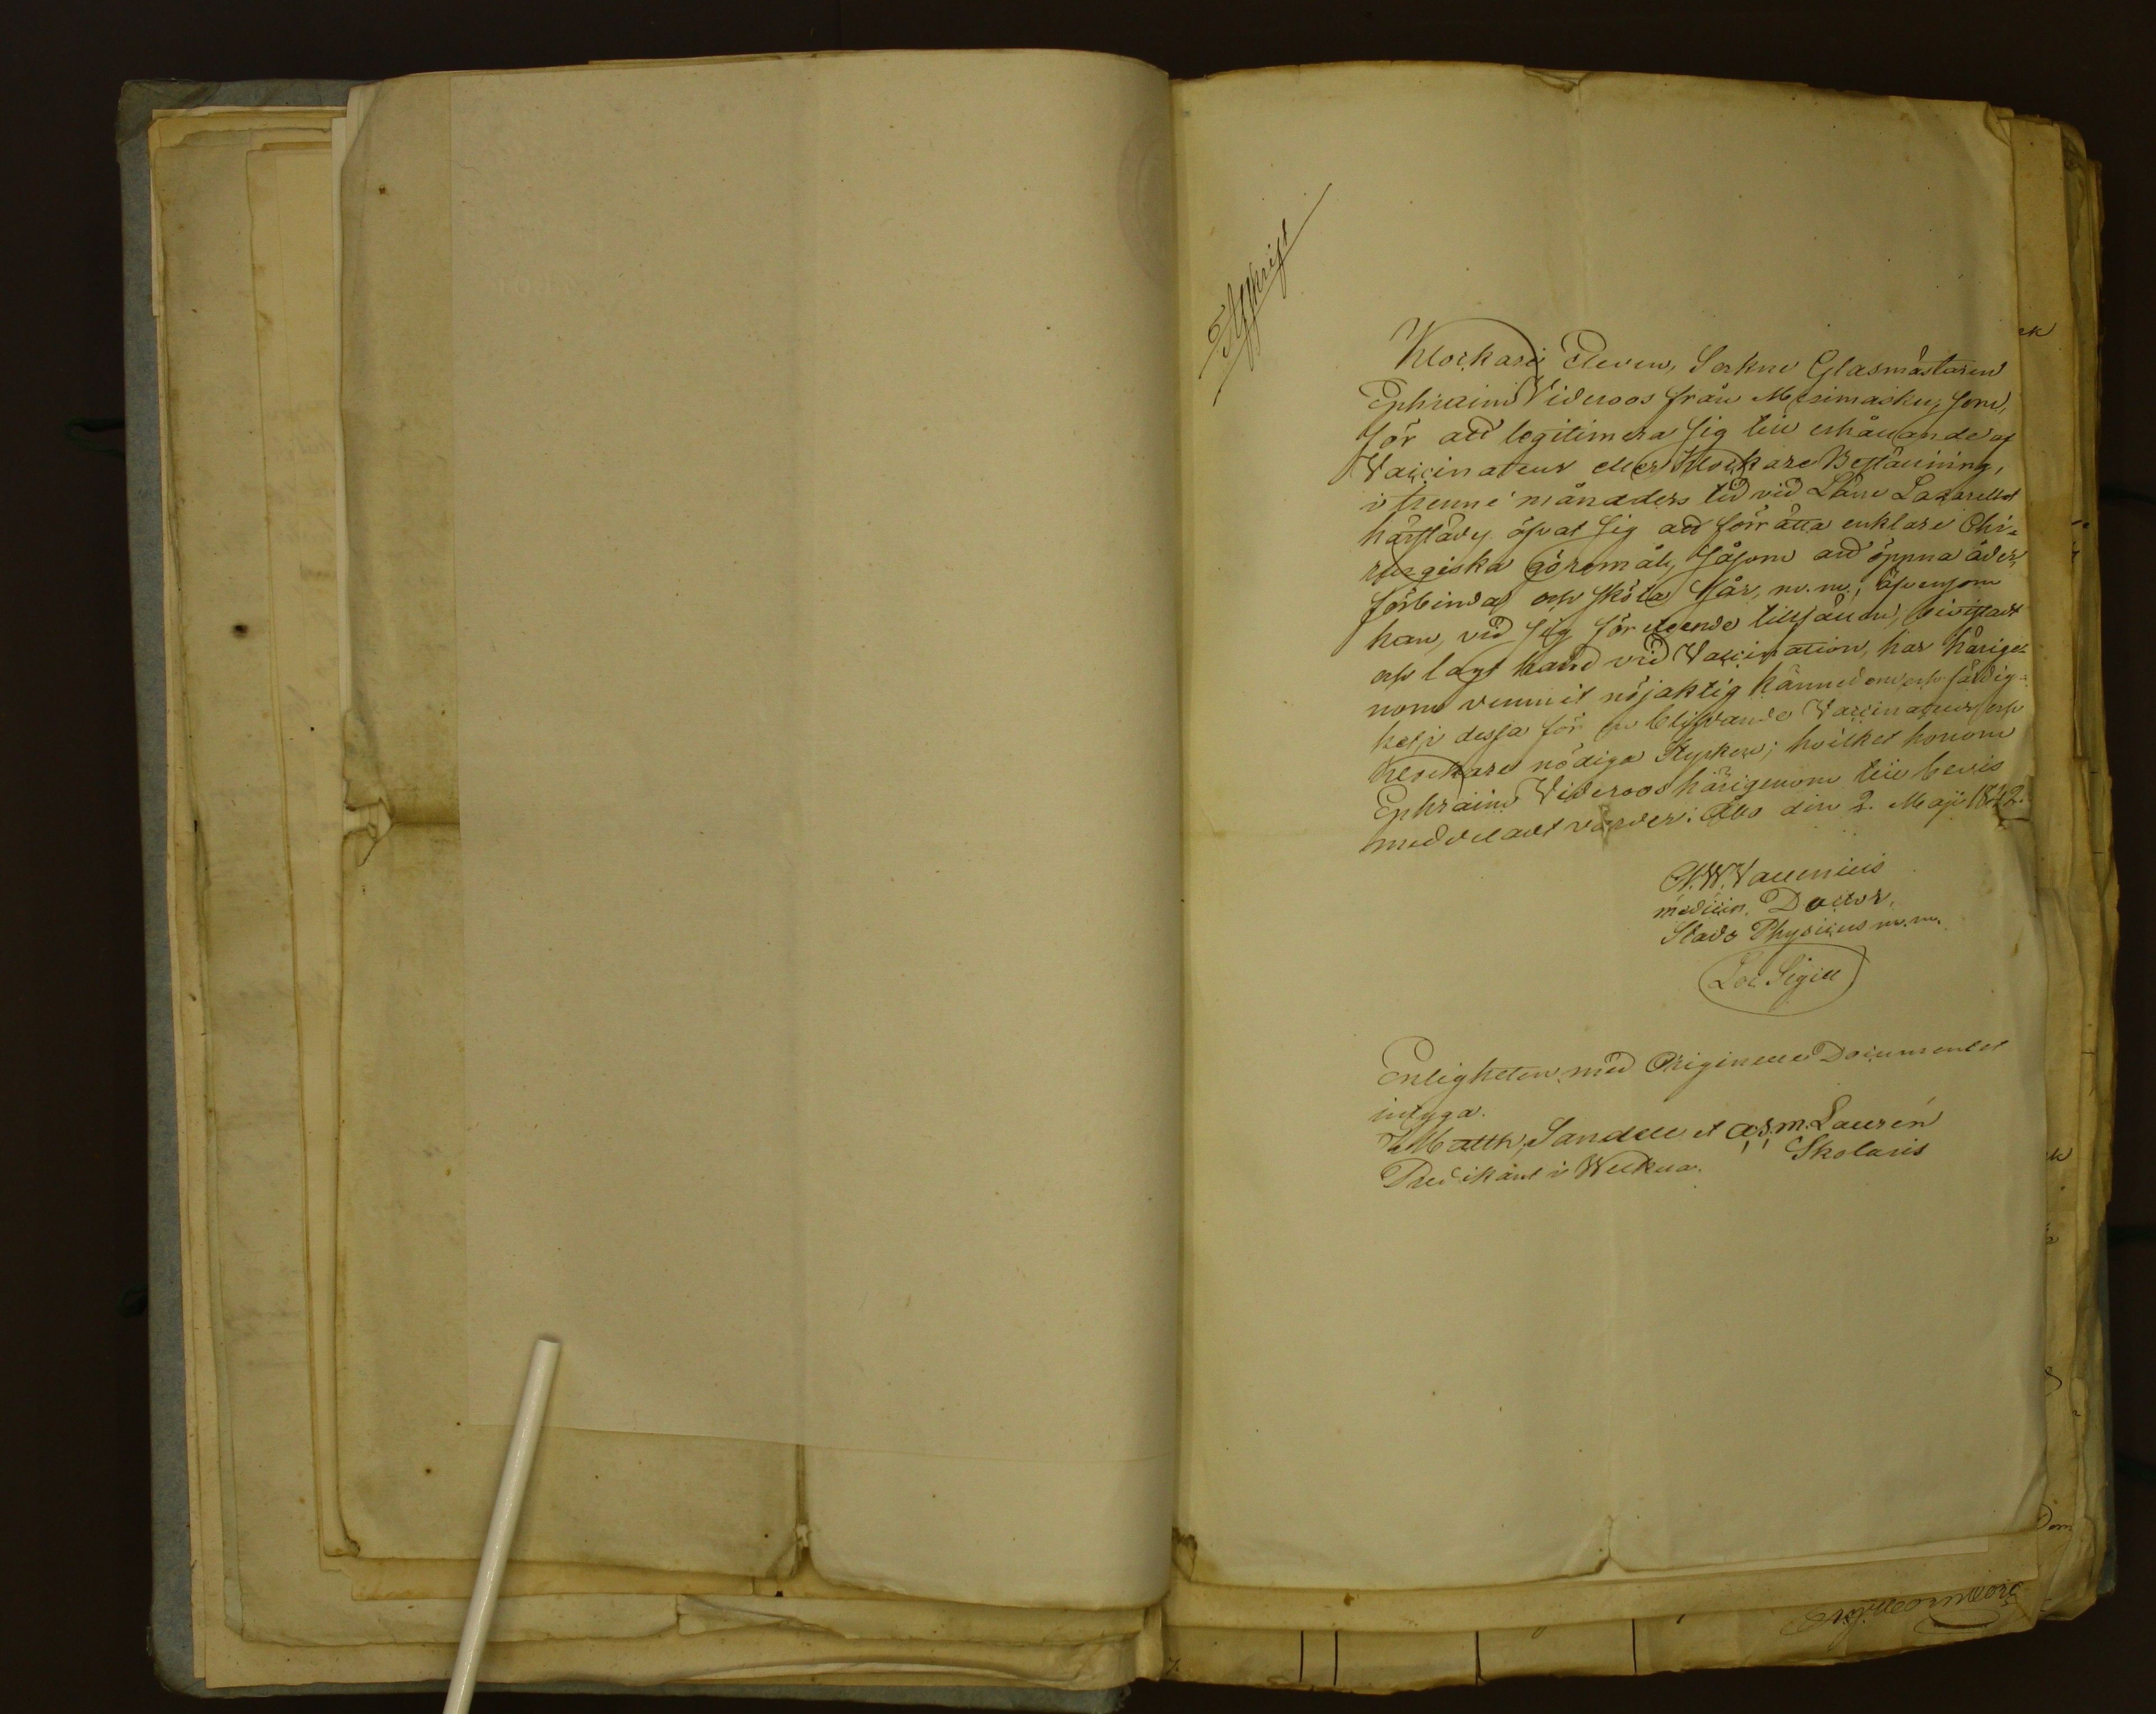 Afskrift
Klockare Eleven, Sockne Glasmästaren
Ephraim Videroos från Mesimasku, som,
för att legitimera sig till erhållande af
Vaccinateur eller Klockare Beställning,
i trenne månaders tid vid Läne Lazarettet
härstädes öfvat sig att förrätta enklare Chi-
rurgiska göromål, såsom att öppna åder,
förbinda och sköta sår, m.m., äfvensom
han, vid sig företeende tillfällen, bivistadt
och lagt hand vid Vaccination, har härige-
nom vunnit nöjaktig kännedom och färdig-
het i dessa för en blifvande Vaccinateur och
Klockare nödiga Stycken; hvilket honom
Ephraim Videroos härigenom till bevis
meddeladt varder. Åbo den 2. Maji 1842.
W. Vallenius
medicin. Doctor,
Stads Physicus m.m.
Loc. Sigill
Enligheten med Originelle Documentet
intyga.
Matth. Sandell et a.s.m. Laurén
Predikant i Welkua. Skolaris